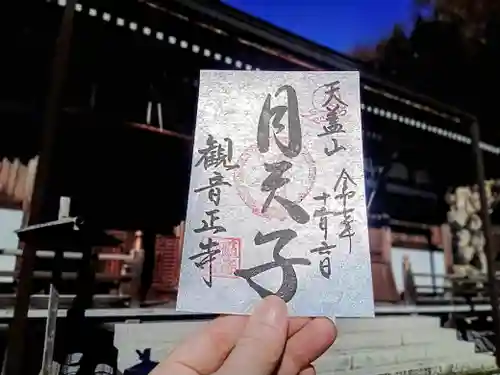 天蓋山
令和七年
十一月六日
月天子
観音正寺